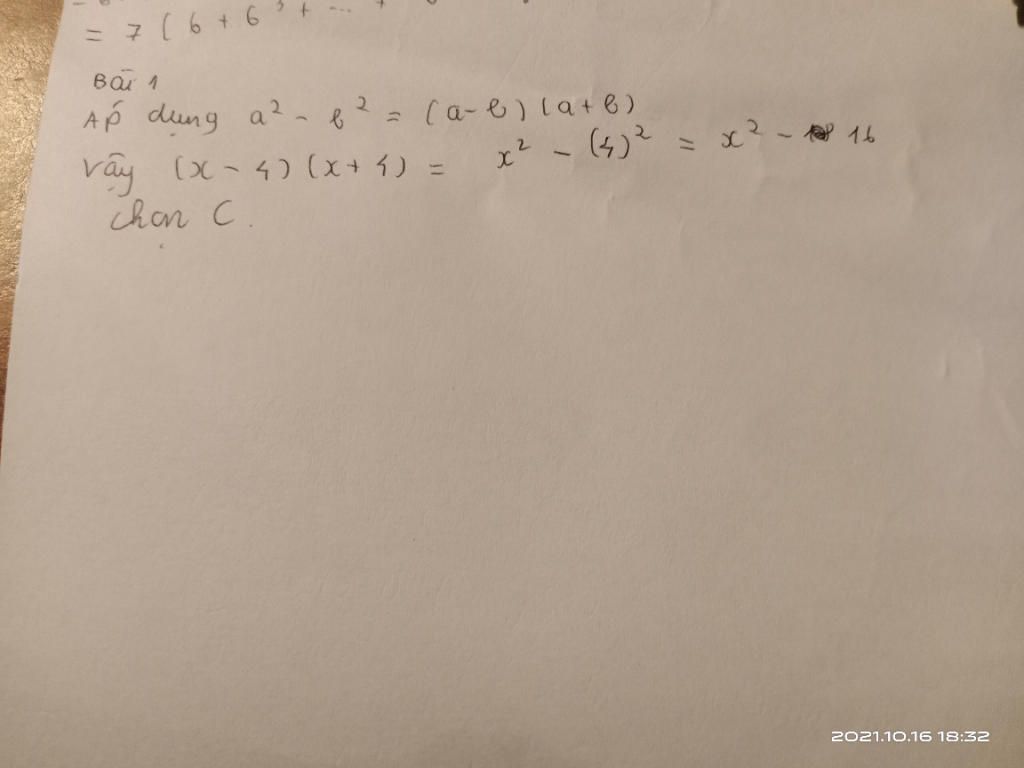 = 7 ( 6 + 6³ + ... +
Bài 1
Áp dụng a² - b² = (a-b) (a+b)
Vậy (x - 4) (x + 4) = x² - (4)² = x² - 16
chọn C.
2021.10.16 18:32